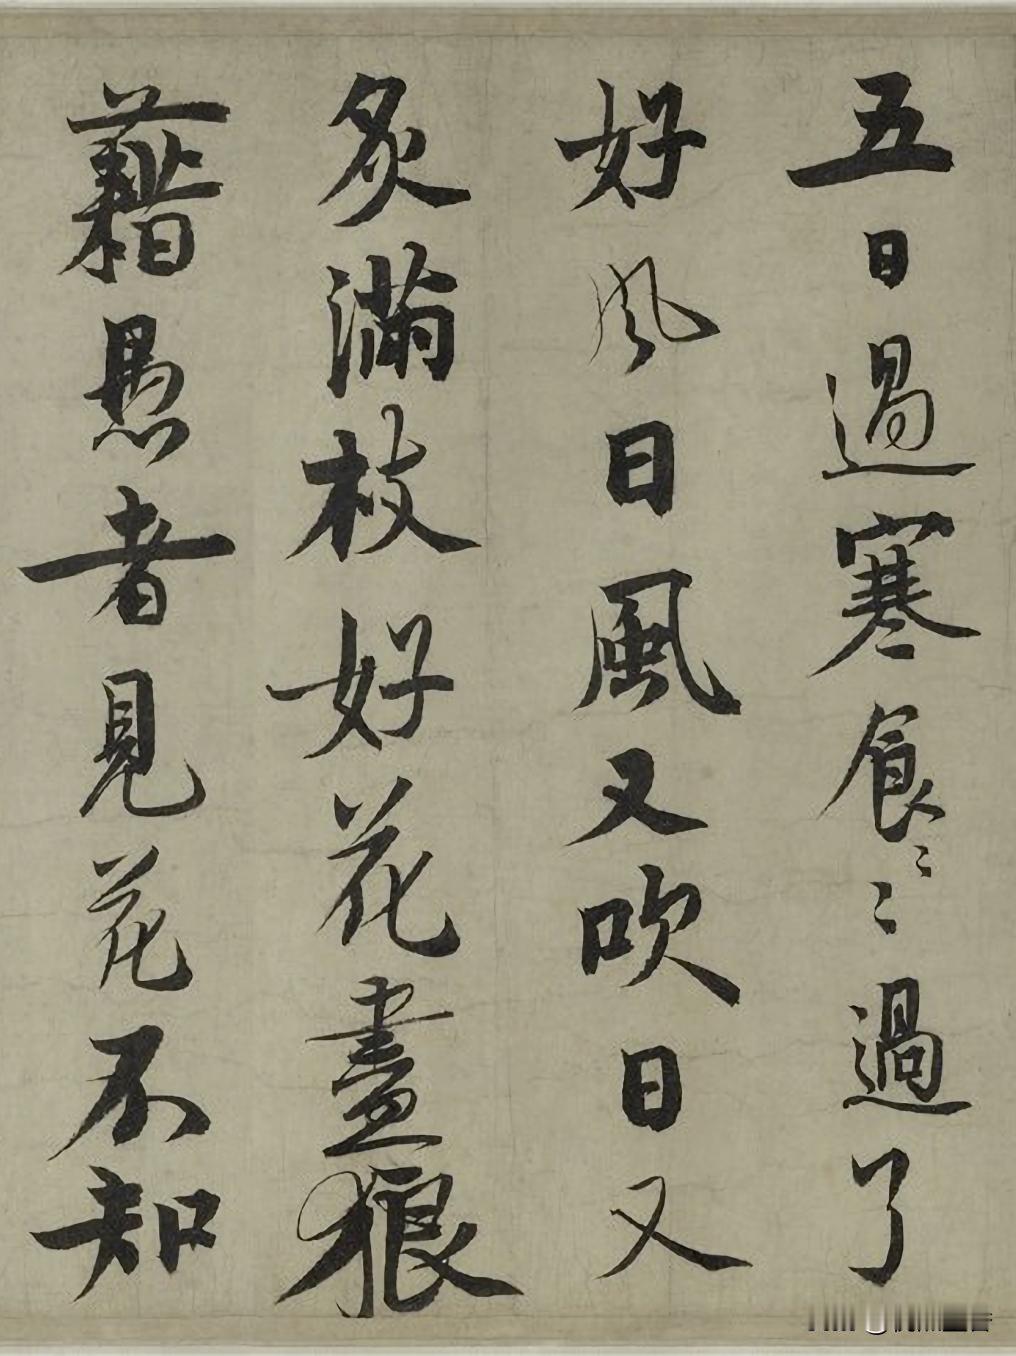 五日過寒食〻〻過了
好風日風又吹日又
炙滿枝好花盡狼
藉愚者見花不知